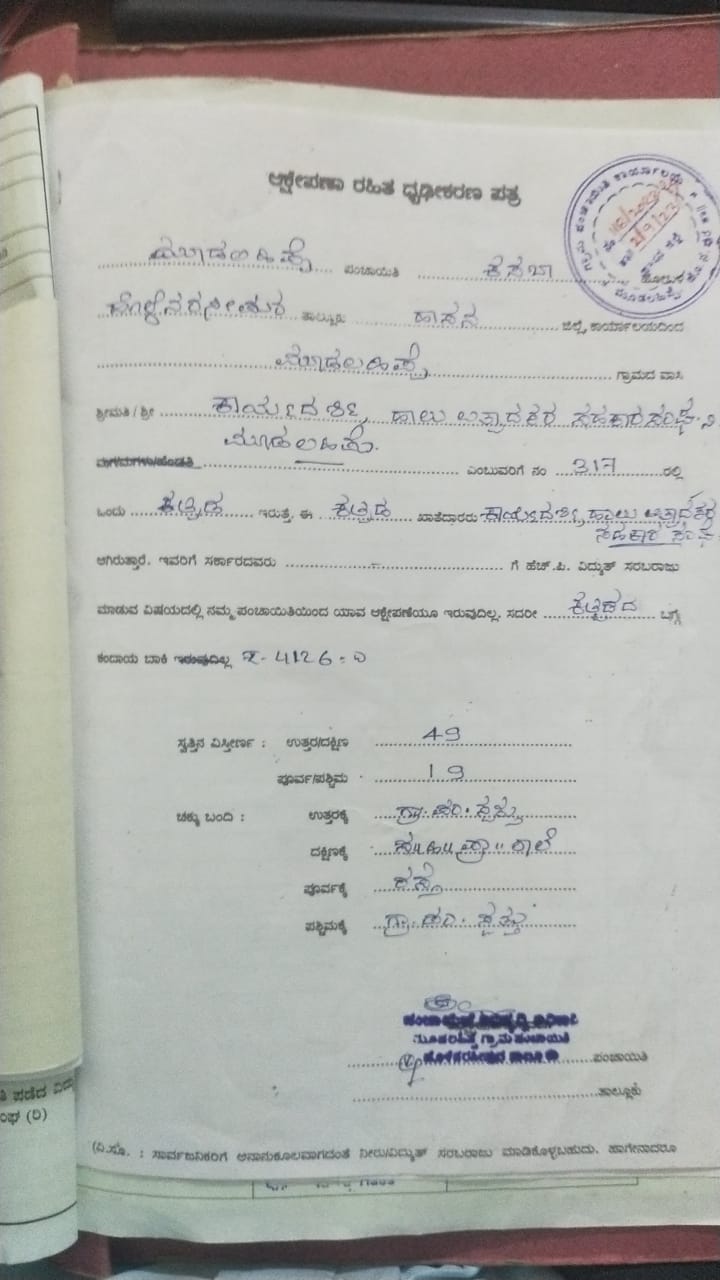 ಆಕ್ಷೇಪಣಾ ರಹಿತ ಧೃಢೀಕರಣ ಪತ್ರ
ಮೂಡಲಹಿಪ್ಪೆ ಪಂಚಾಯಿತಿ ಕಸಬಾ ಹೋಬಳಿ
ಹೊಳೆನರಸೀಪುರ ತಾಲ್ಲೂಕು ಹಾಸನ ಜಿಲ್ಲೆ, ಕಾರ್ಯಾಲಯದಿಂದ
ಮೂಡಲಹಿಪ್ಪೆ ಗ್ರಾಮದ ವಾಸಿ
ಶ್ರೀಮತಿ / ಶ್ರೀ ಕಾರ್ಯದರ್ಶಿ, ಹಾಲು ಉತ್ಪಾದಕರ ಸಹಕಾರ ಸಂಘ.ನಿ
ಮೂಡಲಹಿಪ್ಪೆ.
ಮಗ/ಮಗಳು/ಹೆಂಡತಿ ಎಂಬುವರಿಗೆ ನಂ 317 ರಲ್ಲಿ
ಒಂದು ಕಟ್ಟಡ ಇರುತ್ತೆ, ಈ ಕಟ್ಟಡ ಖಾತೆದಾರರು ಕಾರ್ಯದರ್ಶಿ, ಹಾಲು ಉತ್ಪಾದಕರ
ಸಹಕಾರ ಸಂಘ
ಆಗಿರುತ್ತಾರೆ. ಇವರಿಗೆ ಸರ್ಕಾರದವರು ಗೆ ಹೆಚ್.ಪಿ. ವಿದ್ಯುತ್ ಸರಬರಾಜು
ಮಾಡುವ ವಿಷಯದಲ್ಲಿ ನಮ್ಮ ಪಂಚಾಯಿತಿಯಿಂದ ಯಾವ ಆಕ್ಷೇಪಣೆಯೂ ಇರುವುದಿಲ್ಲ. ಸದರೀ ಕಟ್ಟಡದ ಬಗ್ಗೆ
ಕಂದಾಯ ಬಾಕಿ ಇರುವುದಿಲ್ಲ 4126
ಸ್ವತ್ತಿನ ವಿಸ್ತೀರ್ಣ : ಉತ್ತರ/ದಕ್ಷಿಣ 49
ಪೂರ್ವ/ಪಶ್ಚಿಮ 19
ಚಕ್ಕು ಬಂದಿ : ಉತ್ತರಕ್ಕೆ ಗ್ರಾ.ಪಂ. ಸ್ವತ್ತು
ದಕ್ಷಿಣಕ್ಕೆ ಸ॥ಹಿ॥ಪ್ರಾ॥ ಶಾಲೆ
ಪೂರ್ವಕ್ಕೆ ರಸ್ತೆ
ಪಶ್ಚಿಮಕ್ಕೆ ಗ್ರಾ.ಪಂ. ಸ್ವತ್ತು
ಪಂಚಾಯಿತಿ ಅಭಿವೃದ್ಧಿ ಅಧಿಕಾರಿ
ಮೂಡಲಹಿಪ್ಪೆ ಗ್ರಾಮ ಪಂಚಾಯಿತಿ
ಹೊಳೆನರಸೀಪುರ ತಾಲ್ಲೂಕು ಪಂಚಾಯಿತಿ
ತಾಲ್ಲೂಕು
(ವಿ.ಸೂ. : ಸಾರ್ವಜನಿಕರಿಗೆ ಅನಾನುಕೂಲವಾಗದಂತೆ ನೀರು/ವಿದ್ಯುತ್ ಸರಬರಾಜು ಮಾಡಿಕೊಳ್ಳಬಹುದು. ಹಾಗೇನಾದರೂ